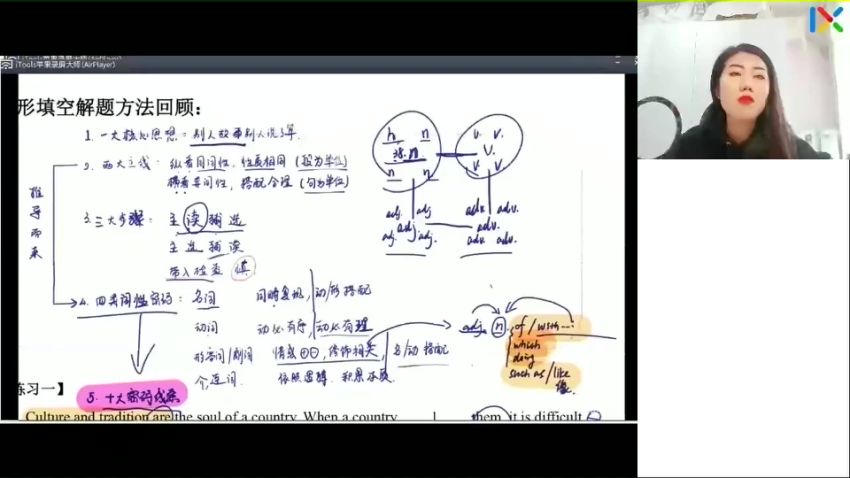 iTools苹果录屏大师(AirPlayer)
形填空解题方法回顾:
1. 一大核心思想:别人故事别人说了算.
2. 两大主线: 纵看同词性, 性质相同 (段为单位)
横看异词性, 搭配合理 (句为单位)
推导而来
3. 三大步骤: 主读辅选
主选辅读
带入检查 慎
4. 四类词性密码: 名词 同畴复现, 动/形搭配
动词 动必有序, 动必有理
形容词/副词 情感⊕⊖, 修饰相关, 名/动搭配
介、连词 依照逻辑
n n v. v.
n v.
n n v v
adj. adj adv. adv.
adj adv.
adj. adj. adv. adv.
adj. n. of / with ...
which
doing
such as / like
像
练习一】
5. 十大密码线索
Culture and tradition are the soul of a country. When a country 1 them, it is difficult